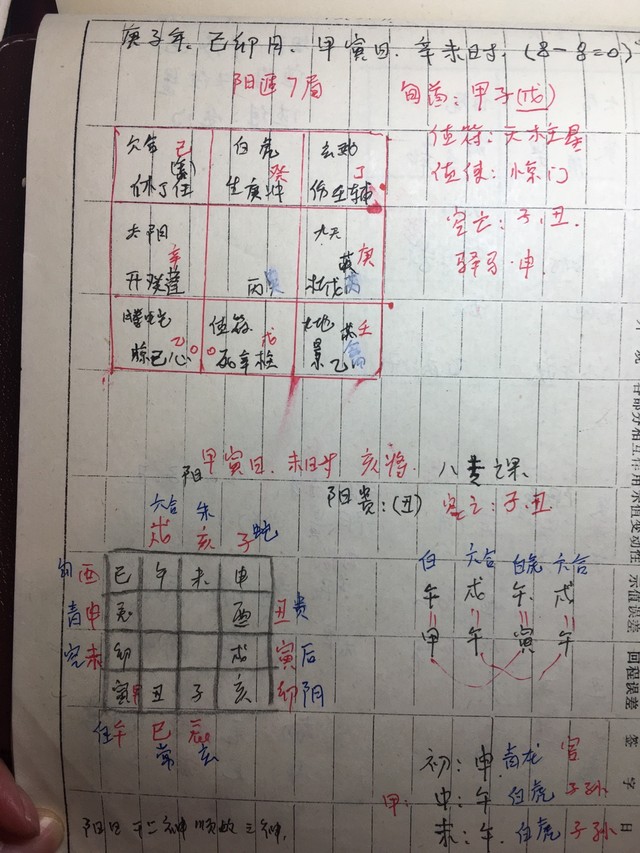 庚子年、己卯月、甲寅日、辛未时、(8-8=0)
阳遁7局
旬首:甲子(戊)
值符:天柱星
值使:惊门
空亡:子、丑
驿马:申
己
休丁任
白虎 癸
生庚冲
玄武 丁
伤壬辅
太阴 辛
开癸蓬
丙
九天 庚
英
杜戊
螣蛇 乙
惊己心
值符 戊
死辛柱
九地 壬
景乙
甲寅日、未时、亥将、八专之课
阳
阳贵:(丑) 空亡:子、丑
六合 朱
戌 亥 子 蛇
酉 巳 午 未 申
青申 辰 酉 丑贵
空未 卯 戌 寅后
寅 丑 子 亥 卯阴
午 巳 辰
常 玄
白 六合 白虎 六合
午 戌 午 戌
甲 午 寅 午
初:申 青龙 官
甲: 中:午 白虎 子孙
末:午 白虎 子孙
各部分相互作用 示值变动性 示值误差 回程误差
签字
日